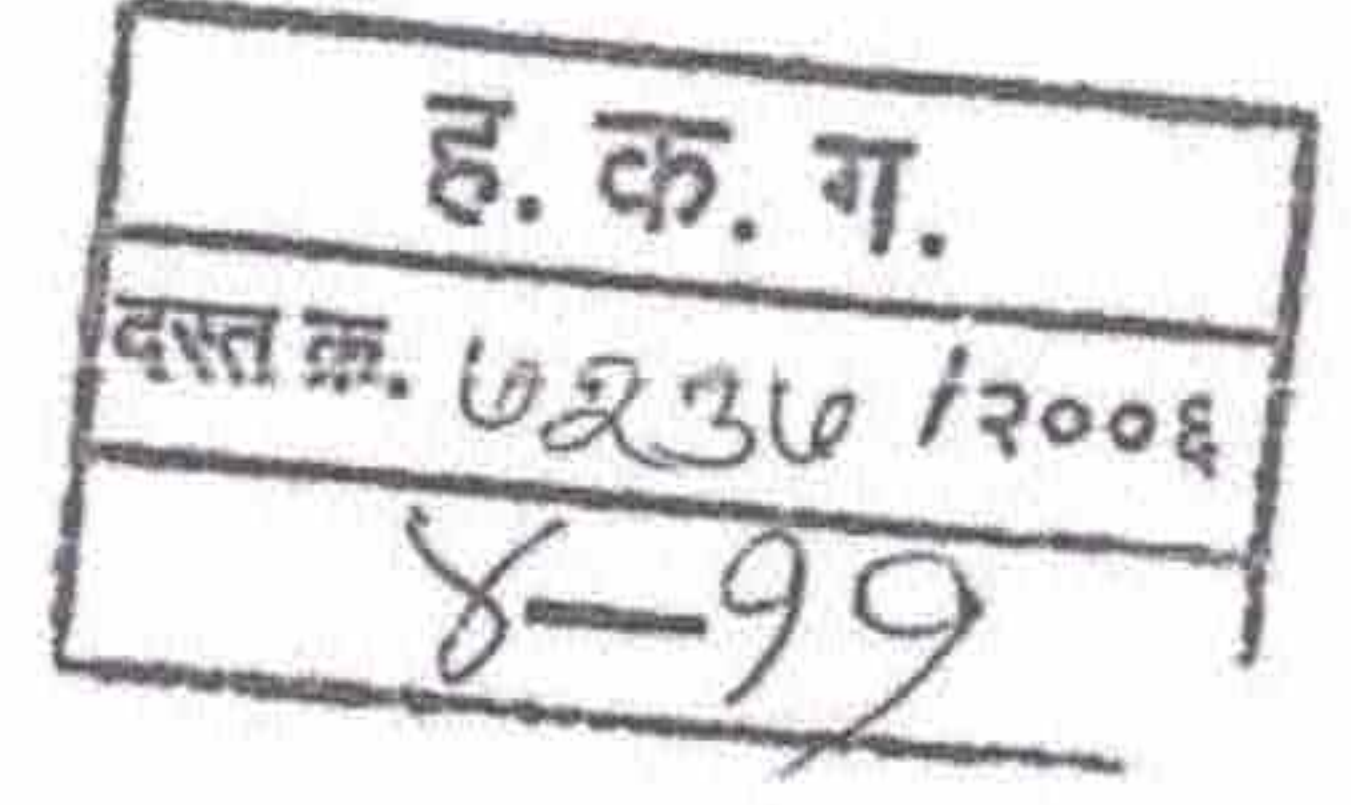 ह. क. ग.
दस्त क्र. ७२३७ /२००६
४-११